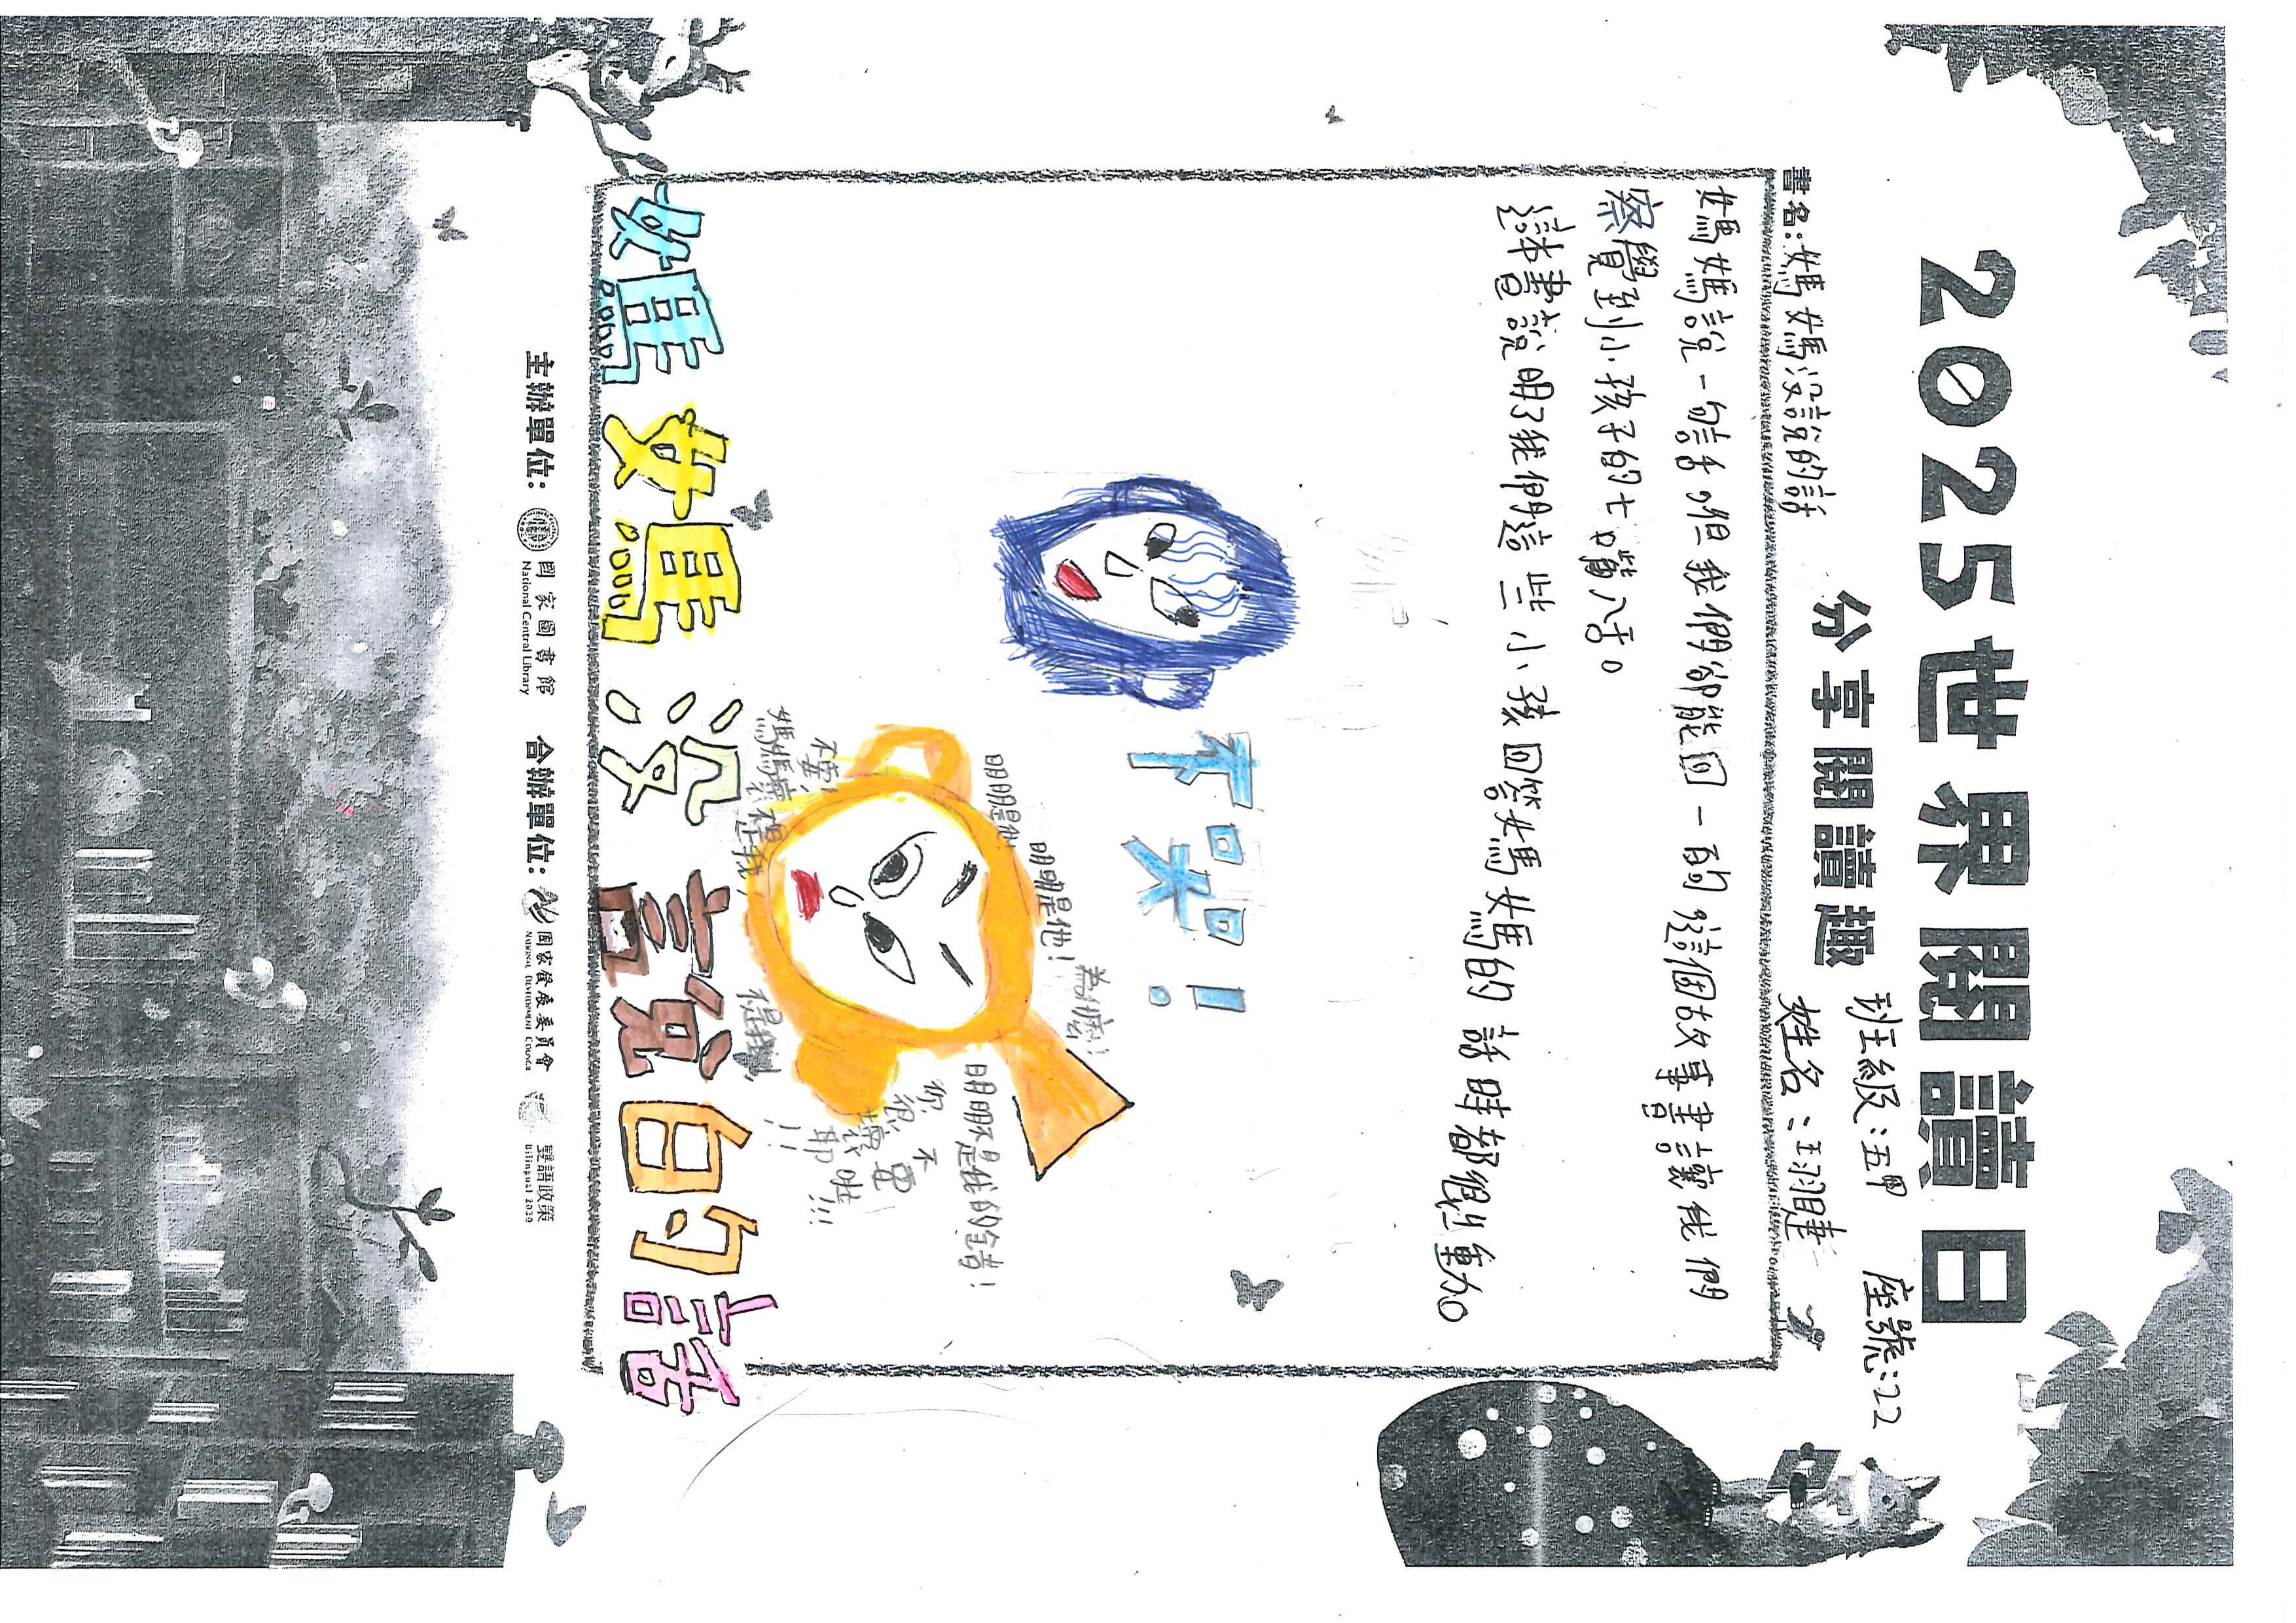 2025世界閱讀日
分享閱讀趣
班級：五甲 座號：22
書名：媽媽沒說的話
姓名：王翊睫
媽媽說一句話，但我們卻能回一百句，這個故事書讓我們
察覺到小孩子的七嘴八舌。
這本書說明了我們這些小孩回答媽媽的話時都很衝動。
不哭！
為什麼！
明明是他！
明明是他
明明不是我的錯！
不要
你很壞耶！！
不要哇！！！
媽媽沒說的話
主辦單位： 國家圖書館
National Central Library
合辦單位： 國家發展委員會
National Development Council
雙語政策
Bilingual 2030